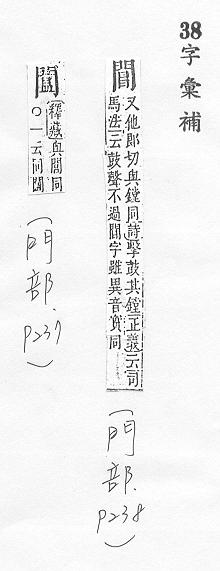 38字彙補
闛
又他郎切與鏜同詩擊鼓其鏜正義云司
馬法云鼓聲不過閶字雖異音實同
(門部.p238)
釋藏與閻同
○一云同闊
(門部.p237)